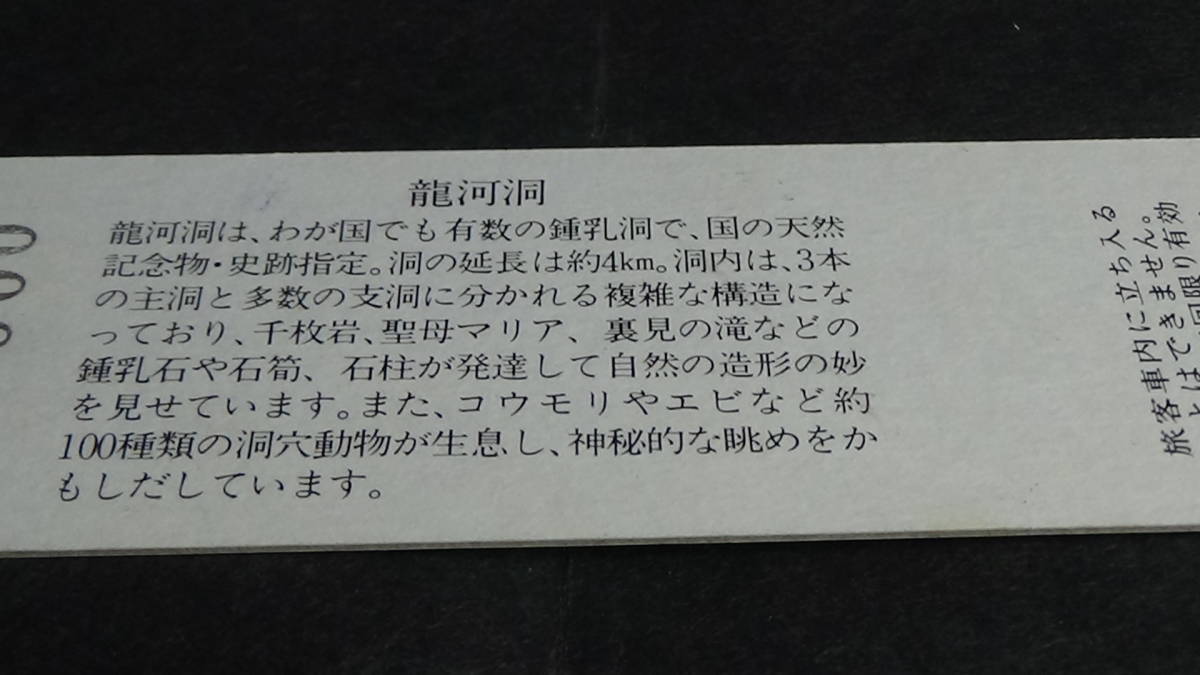 龍河洞
龍河洞は、わが国でも有数の鍾乳洞で、国の天然
記念物・史跡指定。洞の延長は約4km。洞内は、3本
の主洞と多数の支洞に分かれる複雑な構造にな
っており、千枚岩、聖母マリア、裏見の滝などの
鍾乳石や石筍、石柱が発達して自然の造形の妙
を見せています。また、コウモリやエビなど約
100種類の洞穴動物が生息し、神秘的な眺めをか
もしだしています。
旅客車内に立ち入る
ことはできません。
回限り有効